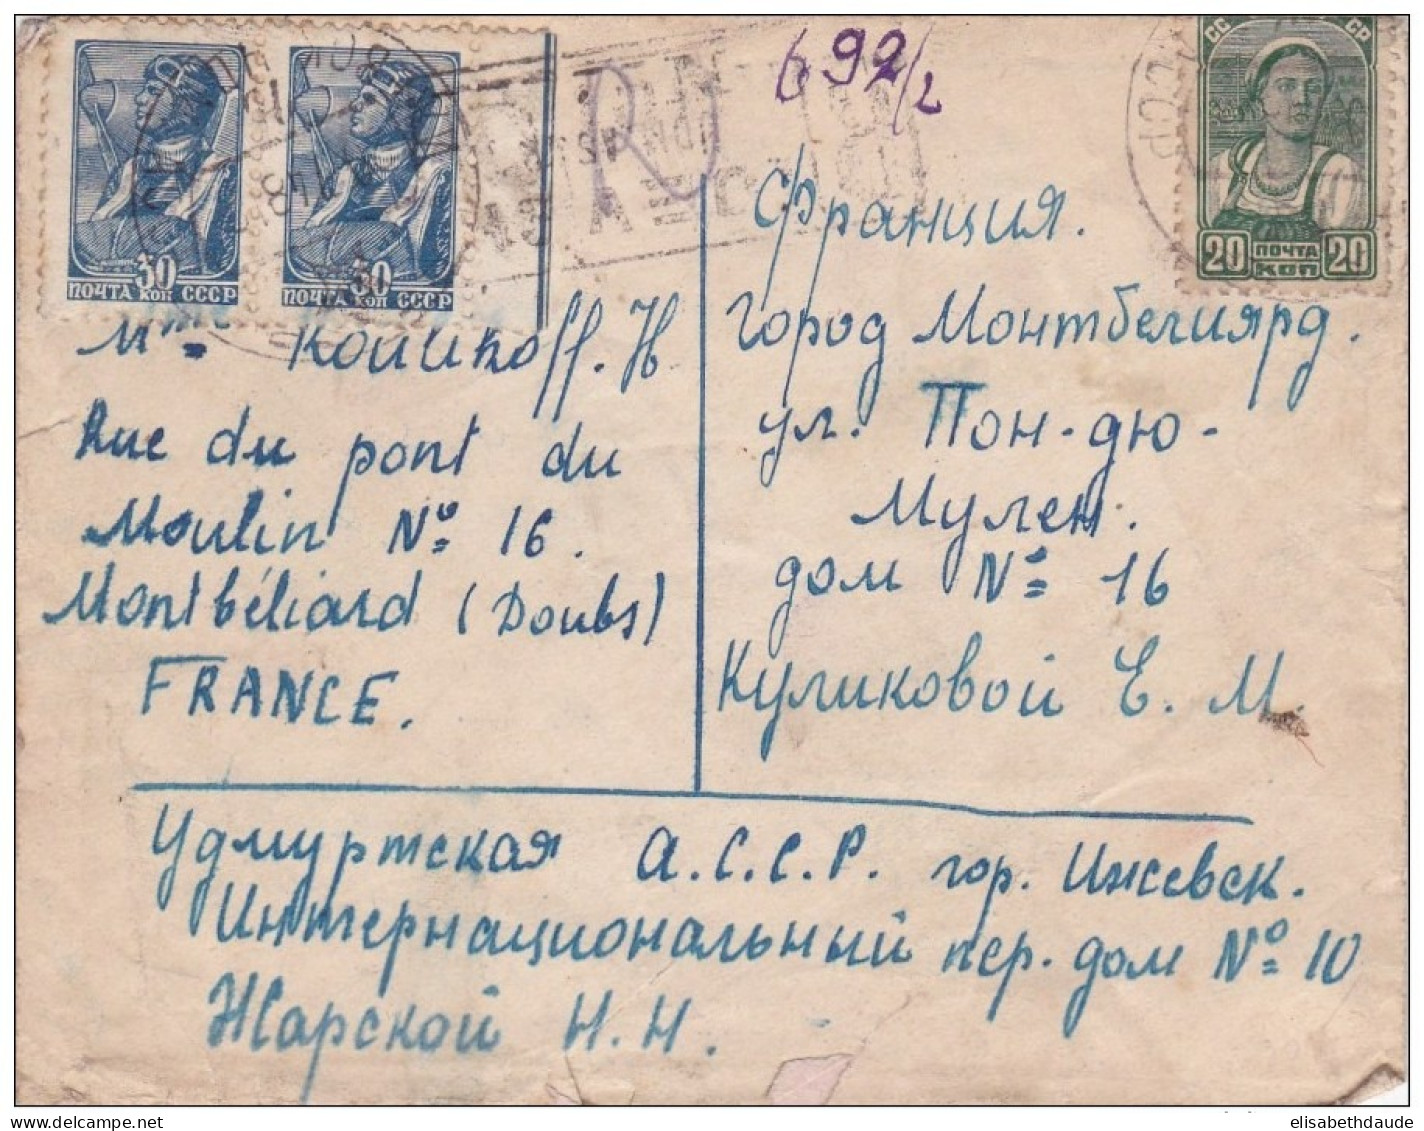 692/2
R
30
ПОЧТА КОП СССР
30
ПОЧТА КОП СССР
СС СР
20 ПОЧТА КОП 20
Mme Koulikoff. H
Rue du pont du
Moulin № 16.
Montbéliard (Doubs)
FRANCE.
Франция.
город Монтбелиярд.
ул. Пон-дю-
Мулен.
дом № 16
Куликовой Е. М.
Удмуртская А.С.С.Р. гор. Ижевск.
Интернациональный пер. дом № 10
Жарской Н. Н.
elisabethdaude